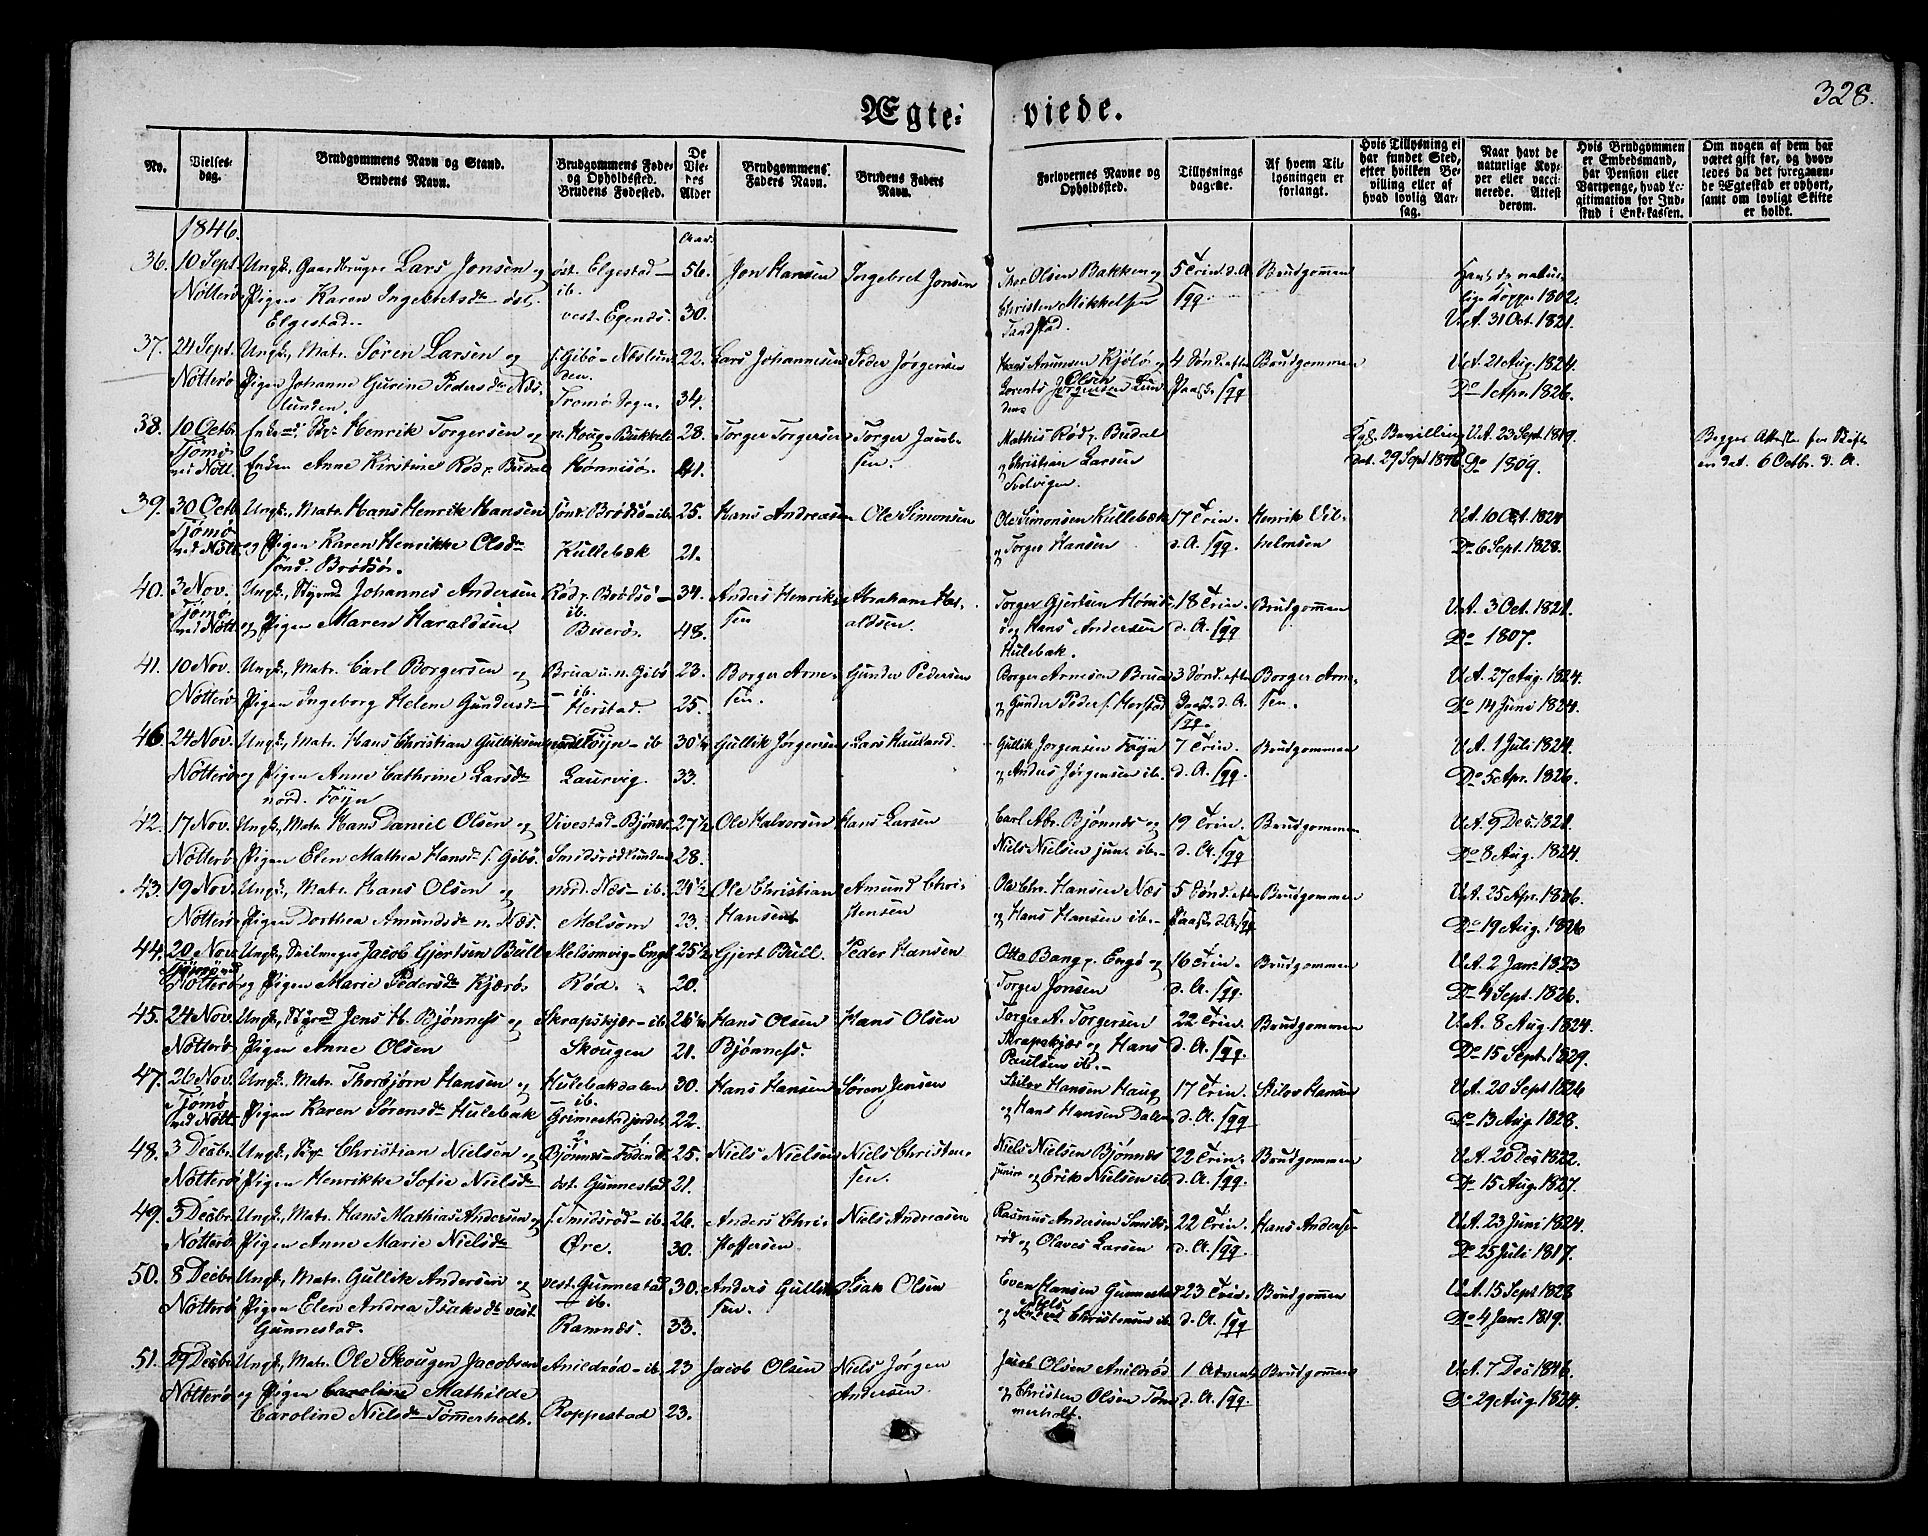 328.
Ægte= viede.
No.
Vielses-
dag.
Brudgommens Navn og Stand.
Brudens Navn.
Brudgommens Føde-
og Opholdssted.
Brudens Fødested.
De
Vie-
des
Alder
Brudgommens
Faders Navn.
Brudens Faders
Navn.
Forlovernes Navne og
Opholdssted.
Tillysnings
dagene.
Af hvem Til-
lysningen er
forlangt.
Hvis Tillysning ei
har fundet Sted,
efter hvilken Be-
villing eller af
hvad lovlig Aar-
sag.
Naar havt de
naturlige Kop-
per eller vacci-
nerede. Attest
derom.
Hvis Brudgommen
er Embedsmand,
har Pension eller
Vartpenge, hvad Le-
gitimation for Ind-
skud i Enk.kassen.
Om nogen af dem har
været gift før, og hvor-
ledes da det foregaaen-
de Ægteskab er ophørt,
samt om lovligt Skifte
er holdt.
1846.
Aar.
36. 10 Sept. Ungk. Gaardbruger Lars Jonsen og øst. Elgestad – 56. Jon Hansen Ingebret Jonsen Thor Olsen Bakken og 5 Trin. d. A. Brudgommen Havt de natur-
Nötterö Pigen Karen Ingebretsdr øst. ib. Christen Mikkelsen Sqq. lige Kopper 1802.
Elgestad. vest. Egenæs. 30. V.A. 31 Oct. 1821.
37. 24 Sept. Ungk. Matr. Sören Larsen og s. Gibö – Næslun- 22. Lars Johannesen Peder Jörgensen Hans Amunsen Kjölö og 4 Sönd. efter Brudgommen V.A. 21 Aug. 1824.
Nötterö Pigen Johanne Gurine Pedersdr Næs- den. Lorents Olsen Lun- Paaske Sqq
lunden. Tromö Sogn. 34. dene Do 1 Apr. 1826.
38. 10 Octb. Enkemd. Henrik Torgersen og n. Houg – Bukkeli 28. Torger Torgersen Torger Jacob- Mathis Röd p. Budal Kgl. Bevilling V.A. 23 Sept. 1819. Begges Attester for Skifte
Tjömö ved Nött. Enken Anne Kirstine Röd p. Budal Hönnisö. 41. sen. og Christian Larsen dat. 29 Sept 1846. Do 1809. en dat. 6 Octbr. d. A.
Solvigen.
39. 30 Octb. Ungk. Matr. Hans Henrik Hansen sönd. Brödsö – ib. 25. Hans Andreasen Ole Simonsen Ole Simonsen Kullebæk 17 Trin. Henrik Vil- V.A. 10 Oct. 1824
Tjömö ved Nött. og Pigen Karen Henrikke Olsdr Kullebæk 21. og Torger Hansen d. A. Sqq. helmsen Do 6 Sept. 1828.
sönd. Brödsö.
40. 3 Nov. Ungk. Styrmd Johannes Andersen Röd p. Brödsö – 34. Anders Henrik- Abraham Har- Torger Gjertsen 18 Trin. Brudgommen V.A. 3 Oct. 1821.
Tjömö ved Nött. og Pigen Maren Haraldsen. ib. Bueröe. 48. sen aldsen. og Hans Andersen d. A. Sqq Do 1807.
Hulebak.
41. 10 Nov. Ungk. Matr. Carl Borgersen og Brua u. n. Gibö 23. Borger Arne- Gunder Pedersen Borger Arnesen Brua 3 Sönd. efter Borger Arne- V.A. 27 Aug. 1824.
Nötterö Pigen Ingeborg Helene Gundersdr – ib. Herstad. 25. sen. og Gunder Peders. Herstad Paaske d. A. Sqq. sen. Do 14 Juni 1824.
46 24 Nov. Ungk. Matr. Hans Christian Gulliksen nord. Föyn – ib 30½ Gullik Jörgensen Lars Hauland. Gullik Jörgensen Föyn 7 Trin. Brudgommen V.A. 1 Juli 1824.
Nötterö og Pigen Anne Cathrine Larsdr Laurvig. 33. og Anders Jörgensen ib. d. A. Sqq. Do 5 Apr. 1826.
nord. Föyn
42. 17 Nov. Ungk. Matr. Hans Daniel Olsen og Vivestad – Bjönnes 27½ Ole Halvorsen Hans Larsen Carl Abr. Bjönnes og 19 Trin. Brudgommen V.A. 9 Des. 1821.
Nötterö Pigen Elen Mathea Hansdr s. Gibö. Smidsrödlunden 28. Niels Nielsen jun. ib. – d. A. Sqq Do 8 Aug. 1824.
43. 19 Nov. Ungk. Matr. Hans Olsen og nord. Næs – ib. 24½ Ole Christian Amund Chri- Ole Chr. Hansen Næs 5 Sönd. efter Brudgommen V.A. 25 Apr. 1826.
Nötterö Pigen Dorthea Amundsdr n. Næs. Melsom 23. Hansen stensen og Hans Hansen ib. – Paaske d. A. Sqq. Do 19 Aug. 1826
44. 20 Nov. Ungk. Seilmager Jacob Gjertsen Bull Melsomvig – Engö 25½ Gjert Bull. Peder Hansen Otto Bang p. Engö og 16 Trin. Brudgommen V.A. 2 Janr. 1823
Nötterö og Pigen Marie Pedersdr Kjærö. Röd. 20. Torger Jonsen d. A. Sqq. Do 4 Sept. 1826.
45. 24 Nov. Ungk. Styrmd Jens H. Bjönness og Skrapskjær – ib. 26¼ Hans Olsen Hans Olsen Torger A. Torgersen 22 Trin. Brudgommen V.A. 8 Aug. 1824.
Nötterö Pigen Anne Olsen Skougen 21. Bjönness. Skrapskjær og Hans d. A. Sqq. Do 15 Sept. 1829.
Paulsen ib. –
47. 26 Nov. Ungk. Matr. Thorbjörn Hansen og Hulebakdalen 30. Hans Hansen Sören Jensen Stilov Hansen Haug 17 Trin. Stilov Hansen V.A. 20 Sept 1826
Tjömö ved Nött. Pigen Karen Sörensdr Hulebak ib. Grimestadjordet. 22. og Hans Hansen Dalen d. A. Sqq Do 13 Aug. 1828.
48. 3 Decbr. Ungk. Christian Nielsen og Bjönnes – Föden 25. Niels Nielsen Niels Christen- Niels Nielsen Bjönnes 22 Trin. Brudgommen V.A. 20 Des 1822.
Nötterö Pigen Henrikke Sofie Nielsdr öst. Gunnestad 21. sen. junior og Erik Nielsen ib. d. A. Sqq. Do 15 Aug. 1827.
49. 5 Decbr. Ungk. Matr. Hans Mathias Andersen og s. Smidsröd – ib. 26. Anders Chri- Niels Andreasen Rasmus Andersen Smids- 22 Trin. Hans Anderse- V.A. 23 Juni 1824.
Nötterö Pigen Anne Marie Nielsdr Øre. 30. stoffersen röd og Olaves Larsen d. A. Sqq. Do 25 Juli 1817.
50. 8 Decbr. Ungk. Matr. Gullik Andersen og vest. Gunnestad 30. Anders Gullik- Isak Olsen Even Hansen Gunnestad 23 Trin. Brudgommen V.A. 15 Sept 1828
Nötterö Pigen Elen Andrea Isaksdr vest. – ib. sen. og Niels Christensen ib. d. A. Sqq Do 4 Janr. 1819.
Gunnestad. Ramnæs. 33.
51. 29 Decbr. Ungk. Matr. Ole Skougen Jacobsen Anildröd – ib. 23 Jacob Olsen Niels Jörgen Jacob Olsen Anildröd 1 Advent Brudgommen V.A. 7 Des 1826.
Nötterö og Pigen Caroline Mathilde Andersen. og Christen Olsen Töm- d. A. Sqq. Do 29 Aug. 1824.
Caroline Nielsdr Tömmerholt. Roppestad 23. merholt.